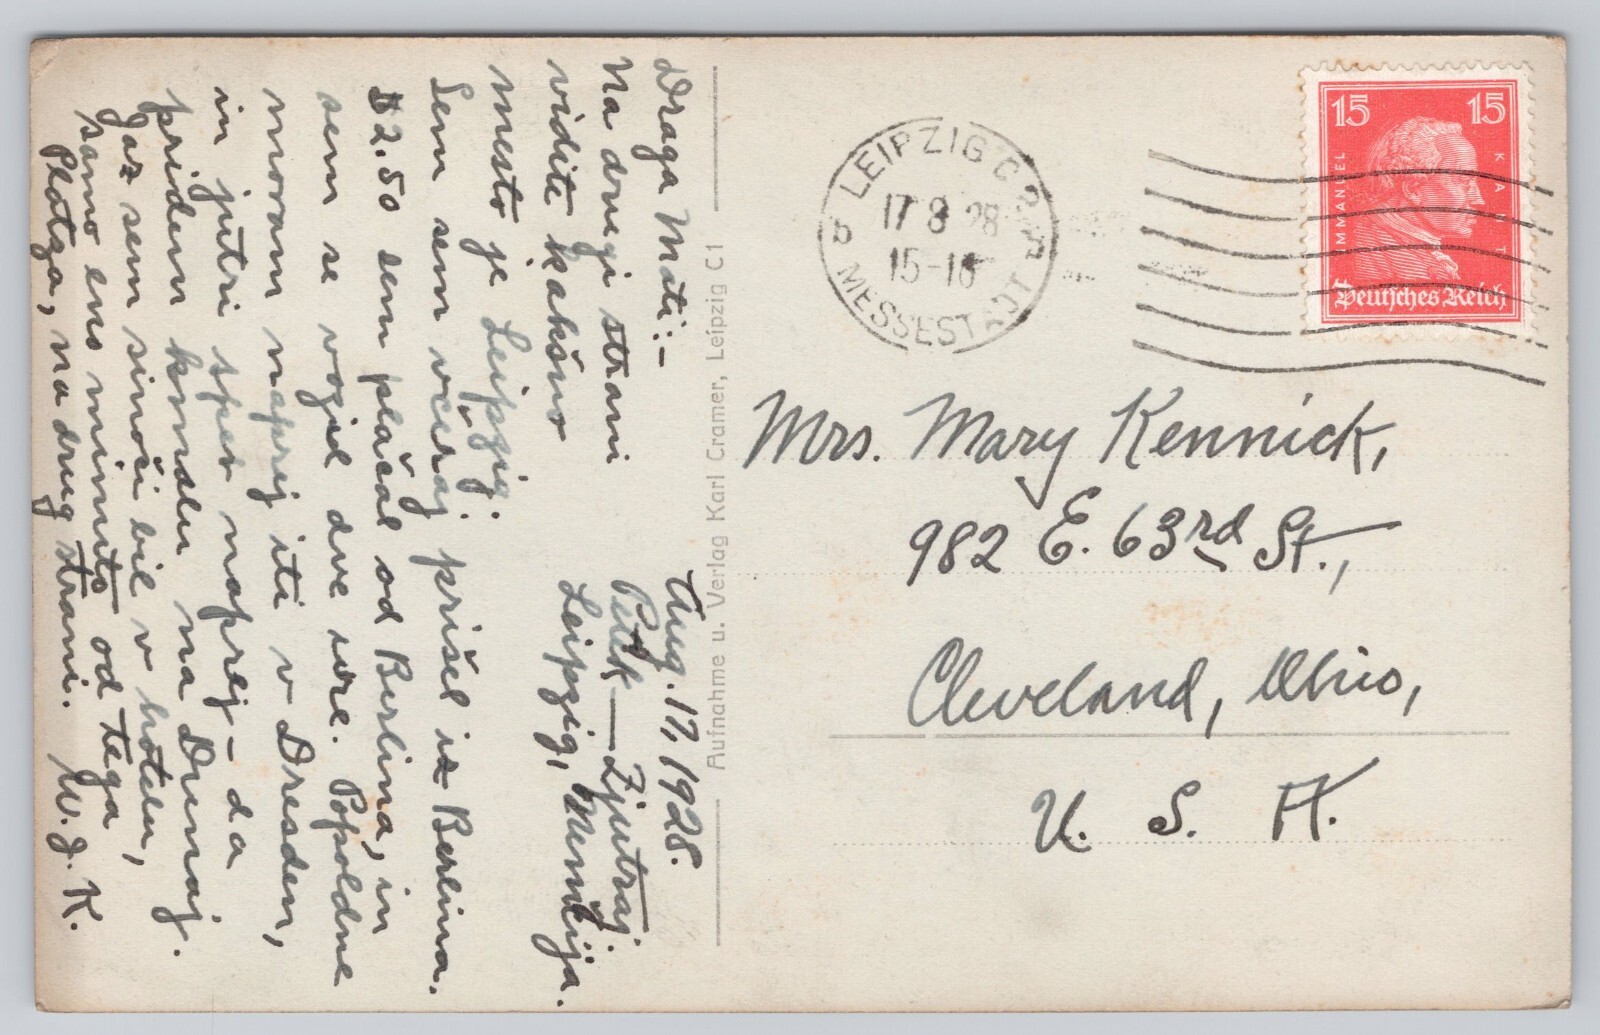 Aug. 17, 1928.
Petek — Zjutraj
Leipzig, Nemčija.
Draga Mati:-
Na drugi strani
vidite kakšno
mesto je Leipzig.
Sem sem včeraj prišel iz Berlina.
$2.50 sem plačal od Berlina, in
sem se vozil dve ure. Popoldne
moram naprej iti v Dresden,
in jutri spet naprej – da
pridem koncu na Dunaj.
Jaz sem sinoči bil v hotelu,
samo eno minuto od tega
Platza, na drug strani. W. J. K.
Aufnahme u. Verlag Karl Cramer, Leipzig C1
LEIPZIG C 2
17 8 28
15-16
b MESSESTADT
15 15
IMMANUEL KANT
Deutsches Reich
Mrs. Mary Kennick,
982 E. 63rd St.,
Cleveland, Ohio,
U. S. A.